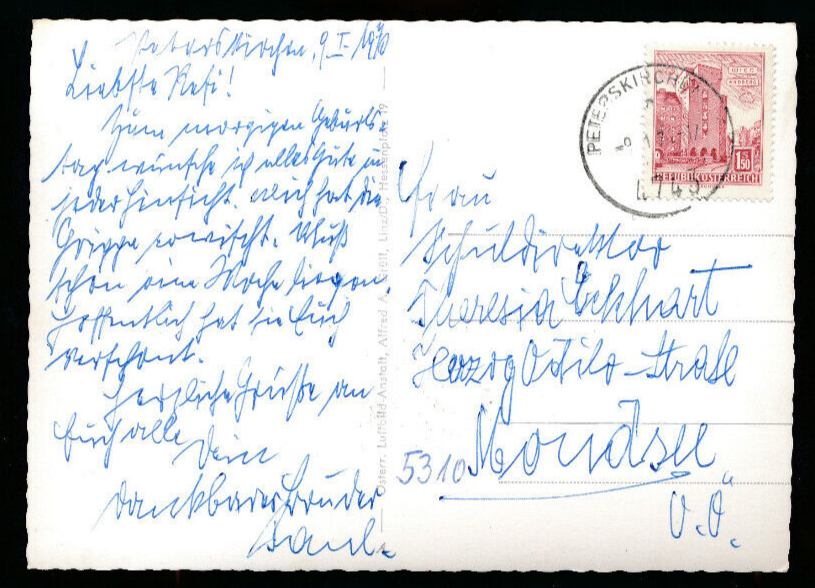 Peterskirchen, 9.I.1970
Liebste Resi!
Zum morgigen Geburts-
tag wünsche ich alles Gute in
jeder Hinsicht. Mich hat die
Grippe erwischt. Muß
schon eine Woche liegen.
Hoffentlich hat sie Euch
verschont.
Herzliche Grüße an
Euch alle
Dein
dankbarer Bruder
Österr. Luftbild-Anstalt, Alfred Linz/D., Hessenplatz 19
PETERSKIRCHEN
WIEC
REPUBLIK ÖSTERREICH
1.50
Frau
Schuldirektor
Theresia Eckhart
Herzog Odilo-Straße
5310 Mondsee
O.Ö.